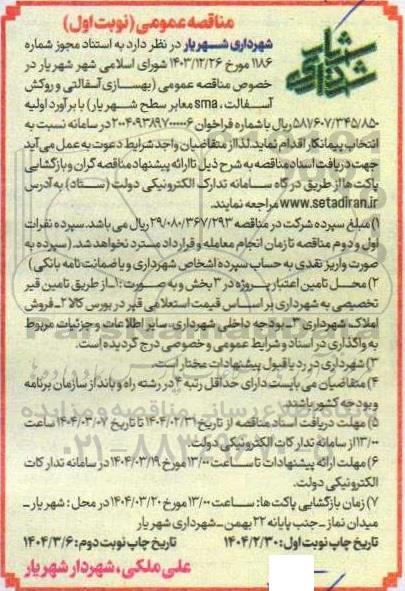 مناقصه عمومی (نوبت اول)
شهرداری شهریار
شهرداری شهریار در نظر دارد به استناد مجوز شماره
۱۱۸۶ مورخ ۱۴۰۳/۱۲/۲۶ شورای اسلامی شهر شهریار در
خصوص مناقصه عمومی (بهسازی آسفالتی و روکش
آسفالت، sma معابر سطح شهریار) با برآورد اولیه
۵۸۷۶۰۷/۳۴۵/۸۵۰ ریال با شماره فراخوان ۲۰۰۴۰۹۳۸۹۷۰۰۰۰۰۶ در سامانه نسبت به
انتخاب پیمانکار اقدام نماید. لذا از متقاضیان واجد شرایط دعوت به عمل می آید
جهت دریافت اسناد مناقصه به شرح ذیل تا ارائه پیشنهاد مناقصه گران و بازگشایی
پاکت ها از طریق درگاه سامانه تدارک الکترونیکی دولت (ستاد) به آدرس
www.setadiran.ir مراجعه نمایند.
۱) مبلغ سپرده شرکت در مناقصه ۲۹/۰۸۰/۳۶۷/۲۹۳ ریال می باشد. سپرده نفرات
اول و دوم مناقصه تا زمان انجام معامله و قرارداد مسترد نخواهد شد. (سپرده به
صورت واریز نقدی به حساب سپرده اشخاص شهرداری و یا ضمانت نامه بانکی)
۲) محل تامین اعتبار پروژه در ۳ بخش و به صورت: ۱ـ از طریق تامین قیر
تخصیصی به شهرداری بر اساس قیمت استعلامی قیر در بورس کالا ۲ـ فروش
املاک شهرداری ۳ـ بودجه داخلی شهرداری، سایر اطلاعات و جزئیات مربوط
به واگذاری در اسناد و شرایط عمومی و خصوصی درج گردیده است.
۳) شهرداری در رد یا قبول پیشنهادات مختار است.
۴) متقاضیان می بایست دارای حداقل رتبه ۴ در رشته راه و باند از سازمان برنامه
و بودجه کشور باشند.
۵) مهلت دریافت اسناد مناقصه از تاریخ ۱۴۰۴/۰۲/۳۱ تا تاریخ ۱۴۰۴/۰۳/۰۷ ساعت
۱۳/۰۰ از سامانه تدارکات الکترونیکی دولت.
۶) مهلت ارائه پیشنهادات تا ساعت ۱۳/۰۰ مورخ ۱۴۰۴/۰۳/۱۹ در سامانه تدارکات
الکترونیکی دولت.
۷) زمان بازگشایی پاکت ها: ساعت ۱۳/۰۰ مورخ ۱۴۰۴/۰۳/۲۰ در محل: شهریار ـ
میدان نماز ـ جنب پایانه ۲۲ بهمن ـ شهرداری شهریار
تاریخ چاپ نوبت اول: ۱۴۰۴/۲/۳۰ تاریخ چاپ نوبت دوم: ۱۴۰۴/۳/۶
علی ملکی، شهردار شهریار